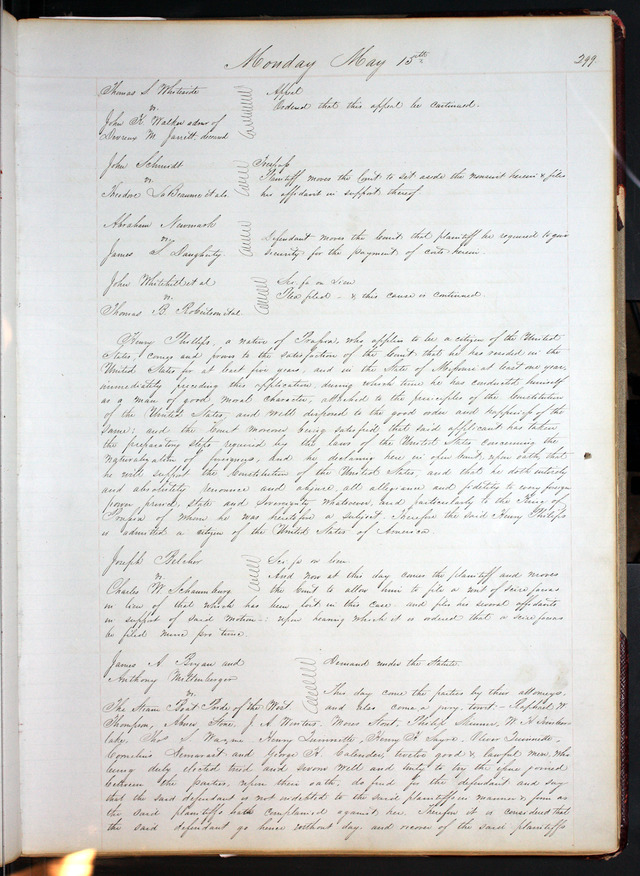 Monday May 15th 299
Thomas S Whiteside
vs.
John K Walker admr of
Devreux M. Jarrett, deceased
Appeal
Ordered that this appeal be continued.
John Schmidt
vs.
Theodore LaBeaume et als.
Trespass
Plaintiff moves the Court to set aside the nonsuit herein & files
his affidavit in support thereof
Abraham Newmark
vs.
James S Daugherty.
Defendant moves the Court that plaintiff be required to give
security for the payment of costs herein.
John Whitehill et al
vs.
Thomas B Robertson et al
Sci. fa on Lien
Plea filed - & this cause is continued.
Henry Phillips, a native of Prussia, who applies to be a citizen of the United
States, comes and proves to the satisfaction of the Court that he has resided in the
United States for at least five years, and in the State of Missouri at least one year,
immediately preceding this application, during which time he has conducted himself
as a man of good moral character, attached to the principles of the Constitution
of the United States, and well disposed to the good order and happiness of the
same; and the Court moreover being satisfied that said applicant has taken
the preparatory steps required by the laws of the United States concerning the
naturalization of foreigners, and he declaring here in open Court, upon oath, that
he will support the Constitution of the United States, and that he doth entirely
and absolutely renounce and abjure all allegiance and fidelity to every foreign
power, prince, state and sovereignty whatsoever, and particularly to the King of
Prussia of whom he was heretofore a subject. Therefore the said Henry Phillips
is admitted a citizen of the United States of America
Joseph Belcher
vs.
Charles W Schaumburg
Sci. fa on lien.
And now at this day comes the plaintiff and moves
the Court to allow him to file a writ of scire facias
in lieu of that which has been lost in this case and files his several affidavits
in support of said motion -; upon hearing which it is ordered that a scire facias
be filed nunc pro tunc.
James A Bryan and
Anthony Miltenberger
vs.
The Steam Boat Pride of the West.
Demand under the Statute
This day come the parties by their attorneys,
and also come a jury, towit - Raphael W
Thompson, Abner Stone, J A Winters, Moses Stout, Philip Skinner, W A
Thos S. Wayne Henry Dunnotte, Henry F Sayre, Oliver
Cornelius Demarest and George K Callender, twelve good & lawful men, who
being duly elected tried and sworn well and truly to try the issue joined
between the parties, upon their oath, do find for the defendant and say
that the said defendant is not indebted to the said plaintiffs in manner & form as
the said plaintiffs hath complained against her. Therefore it is considered that
the said defendant go hence without day, and recover of the said plaintiffs